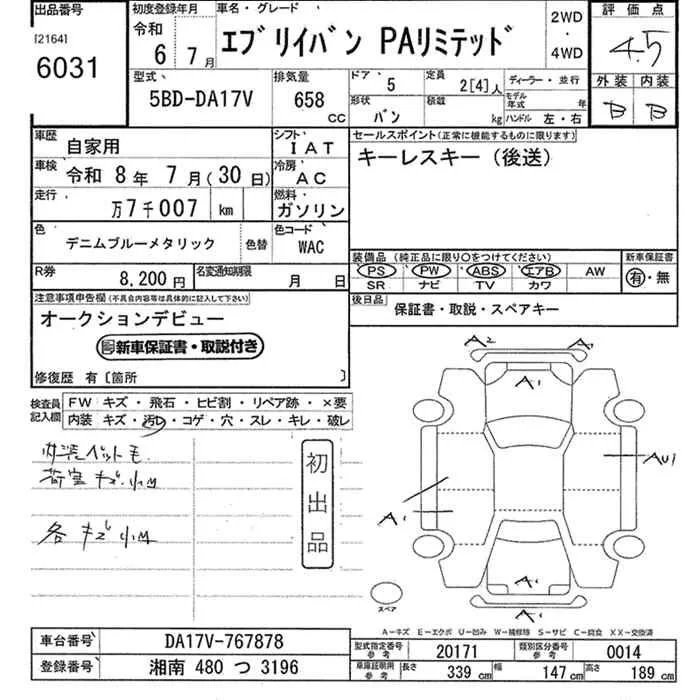 出品番号
[2164]
6031
初度登録年月
令和
6 7月
車名・グレード
エブリイバン PAリミテッド
2WD
・
4WD
評価点
4.5
型式
5BD-DA17V
排気量
658
CC
ドア
5
定員
2[4]人
ディーラー・並行
形状
バン
積載
kg
モデル年式
年
ハンドル 左・右
外装 内装
B B
車歴
自家用
シフト
IAT
車検
令和 8年 7月(30日)
冷房
AC
走行
万7千007 km
燃料
ガソリン
色
デニムブルーメタリック
色替
色コード
WAC
R券
8,200円
名変通知期限
月 日
セールスポイント(正常に機能するものに限ります)
キーレスキー(後送)
装備品(純正品に限り○をつけてください)
新車保証書
PS PW ABS エアB AW
SR ナビ TV カワ
有・無
後日品
保証書・取説・スペアキー
注意事項申告欄(不具合内容等は具体的に記入して下さい)
オークションデビュー
新車保証書・取説付き
修復歴 有〔箇所 〕
検査員記入欄
FW キズ・飛石・ヒビ割・リペア跡・×要
内装 キズ・汚レ・コゲ・穴・スレ・キレ・破レ
荷室キズ小M
各キズ小M
初出品
A2
A1
A1
AU1
A1
スペア
A-キズ E-エクボ U-凹み W-補修跡 S-サビ C-腐食 XX-交換済
車台番号
DA17V-767878
登録番号
湘南 480 つ 3196
型式指定番号
参考
20171
類別区分番号
参考
0014
車庫証明用
参考
長さ
339 cm
幅
147 cm
高さ
189 cm